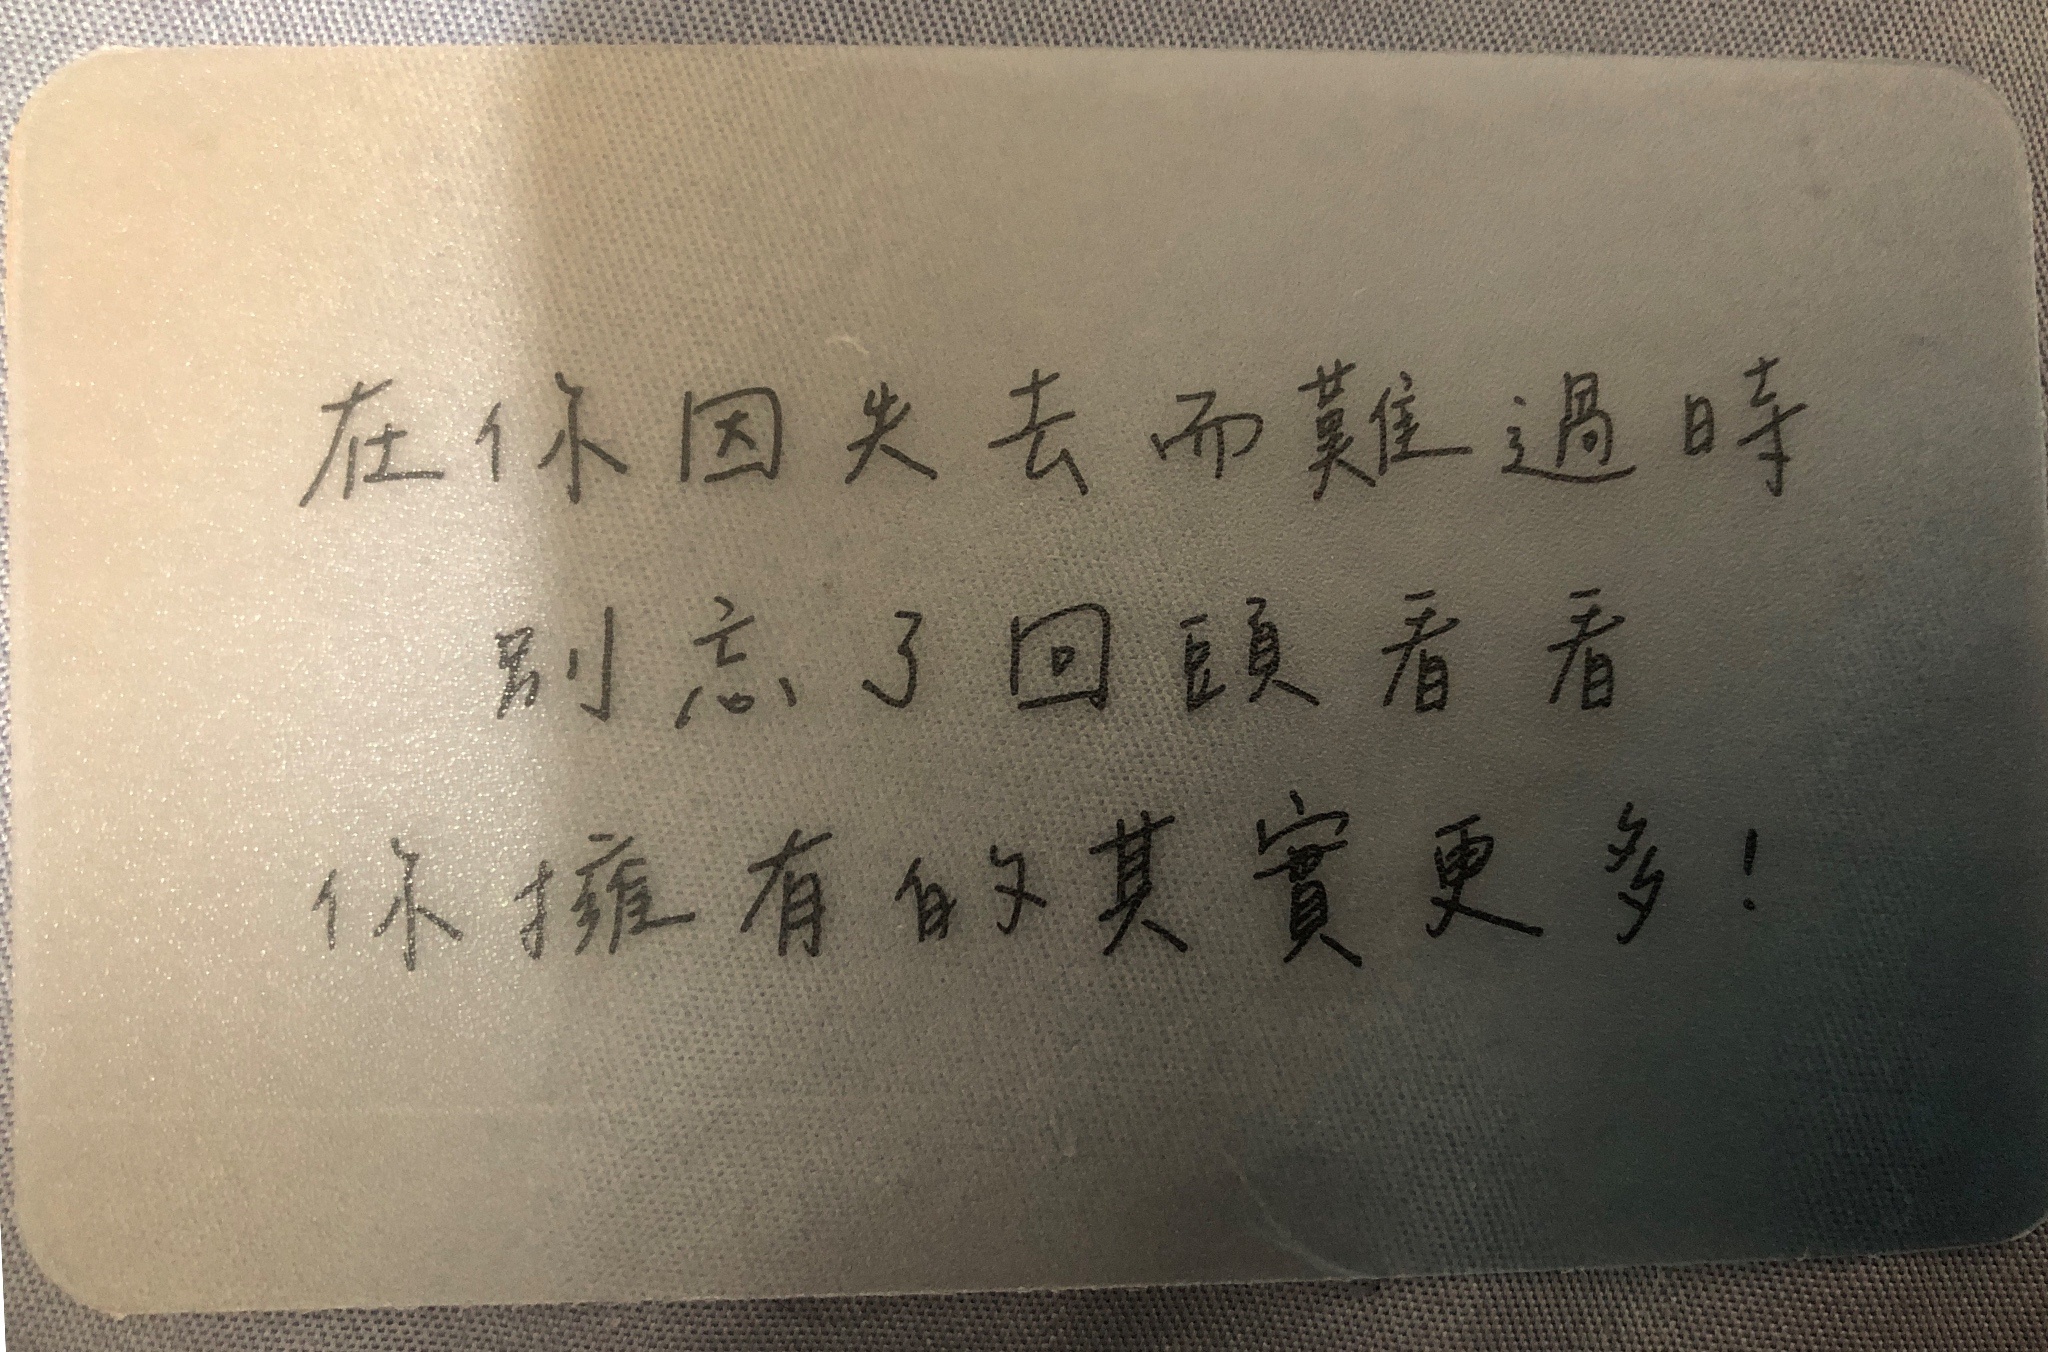 在你因失去而難過時
別忘了回頭看看
你擁有的其實更多！